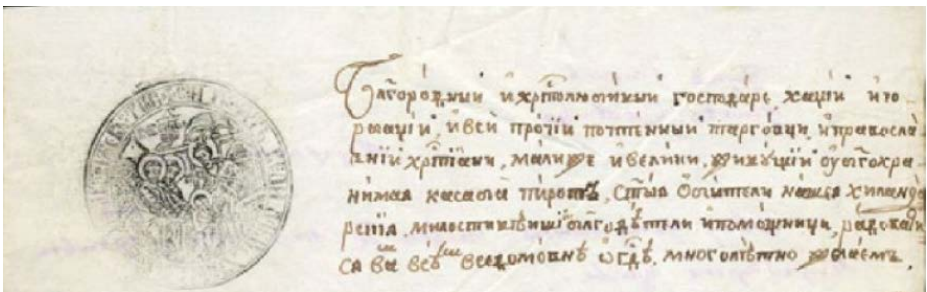 Бл҃городныи и хрⷭ҇толюбивыи господарь хаџїи и їо
ваџїи, и вси прочїи почтенныи тарговци, и правосла
внїи хрⷭ҇тїани, мали же и велики, живущїи ѹ бг҃охра
нимаѧ касаба пиротъ, ст҃ыѧ ѻбители нашеѧ хиланда
рскїѧ, милостивѣишї бл҃годѣтели и помощници, радовати
сѧ ва всѣ вседомовнѣ ѡ гдⷭ҇ѣ, многолѣтно желаемъ.